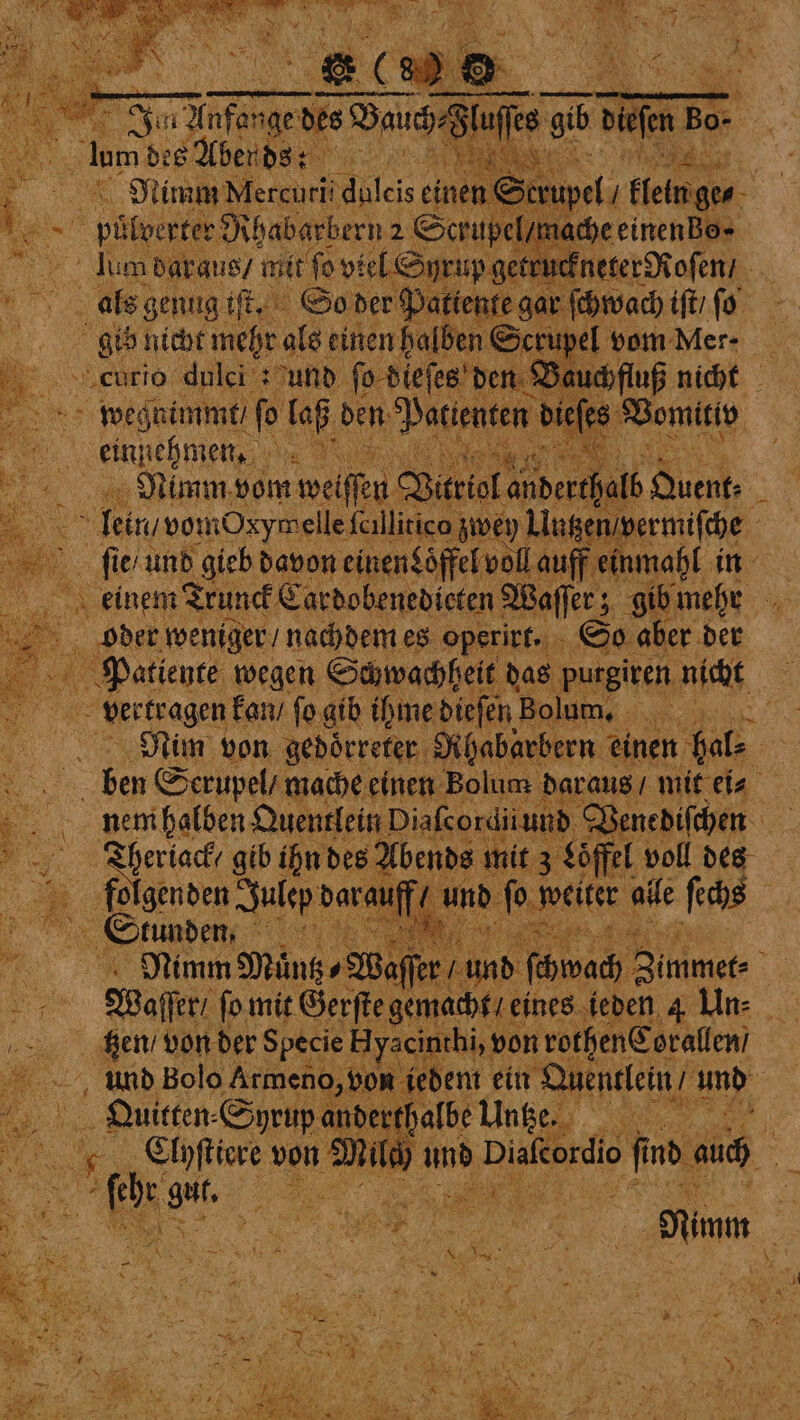 (8)
Im Anfange des Bauch-Flusses gib diesen Bo-
lum des Abends:
Nimm Mercurii dulcis einen Scrupel / klein ge-
pülverter Rhabarbern 2 Scrupel/mache einen Bo-
lum daraus/ mit so viel Syrup getruckneter Rosen/
als genug ist. So der Patiente gar schwach ist/ so
gib nicht mehr als einen halben Scrupel vom Mer-
curio dulci : und so dieses den Bauchfluß nicht
wegnimmt/ so laß den Patienten dieses Vomitiv
einnehmen.
Nimm vom weissen Vitriol anderthalb Quent-
lein/ vom Oxymelle scillitico zwey Untzen/vermische
sie/ und gieb davon einen Löffel voll auff einmahl in
einem Trunck Cardobenedicten Wasser; gib mehr
oder weniger / nachdem es operirt. So aber der
Patiente wegen Schwachheit das purgiren nicht
vertragen kan/ so gib ihme diesen Bolum.
Nim von gedörreter Rhabarbern einen hal-
ben Scrupel/ mache einen Bolum daraus / mit ei-
nem halben Quentlein Diascordii und Venedischen
Theriack/ gib ihn des Abends mit 3 Löffel voll des
folgenden Julep darauff / und so weiter alle sechs
Stunden.
Nimm Müntz-Wasser / und schwach Zimmet-
Wasser/ so mit Gerste gemacht / eines ieden 4 Un-
tzen/ von der Specie Hyacinthi, von rothen Corallen/
und Bolo Armeno, von iedem ein Quentlein / und
Quitten-Syrup anderthalbe Untze.
Clystiere von Milch und Diascordio sind auch
sehr gut.
Nimm